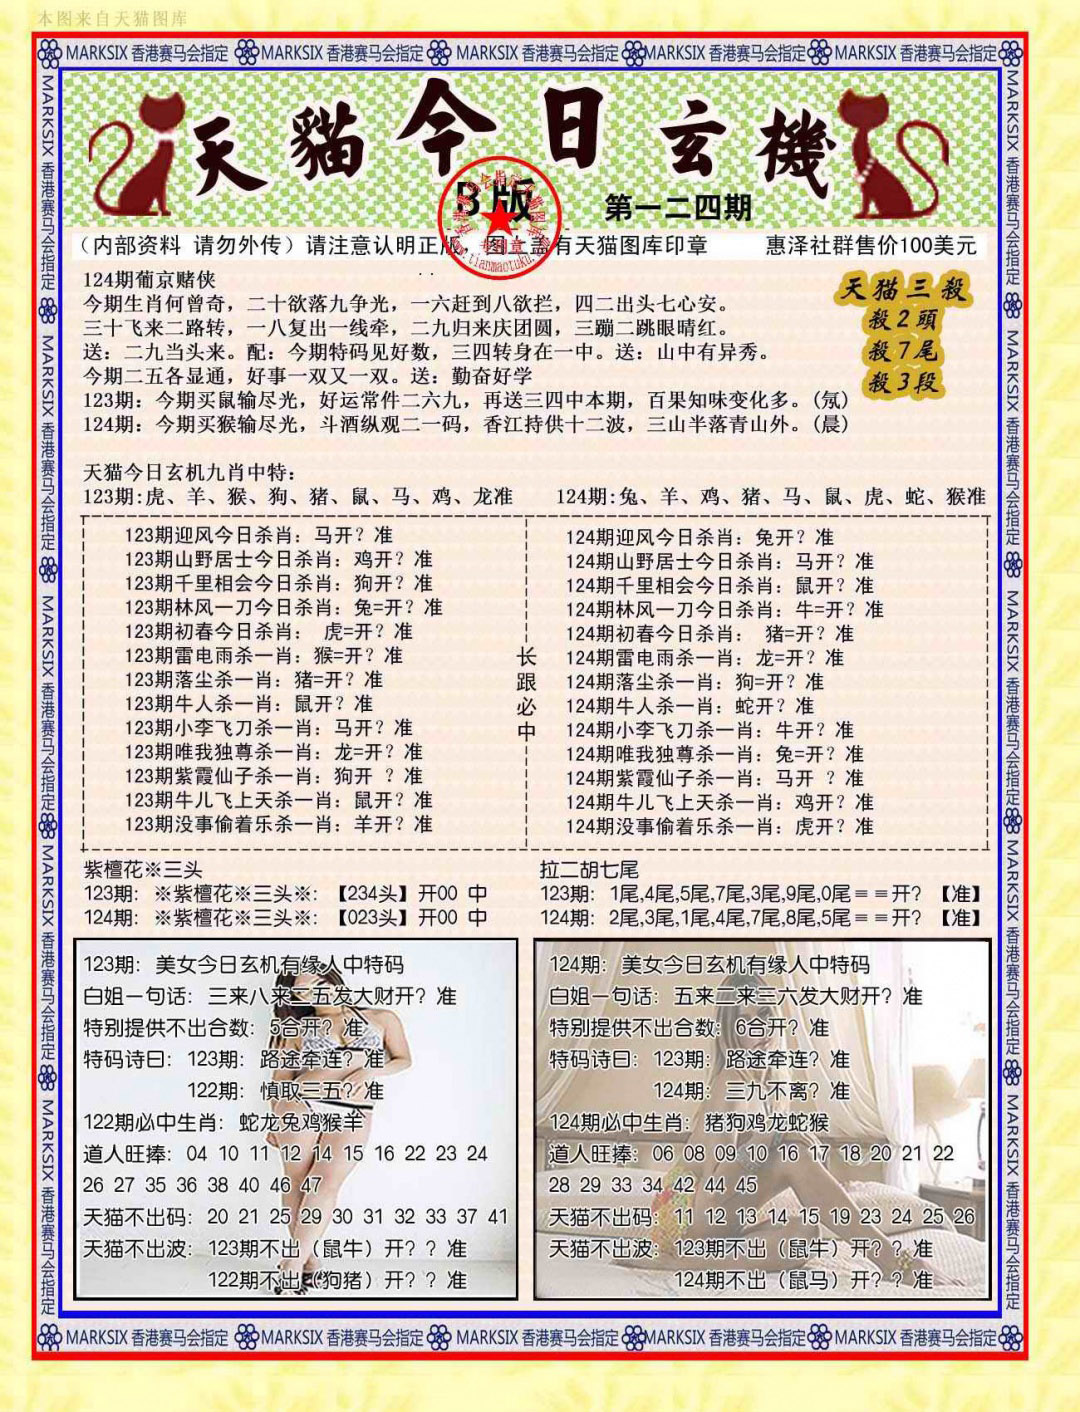 本图来自天猫图库
MARKSIX 香港赛马会指定 MARKSIX 香港赛马会指定 MARKSIX 香港赛马会指定 MARKSIX 香港赛马会指定 MARKSIX 香港赛马会指定
天猫今日玄機
B版
第一二四期
（内部资料 请勿外传）请注意认明正版，图上盖有天猫图库印章 惠泽社群售价100美元
124期葡京赌侠
今期生肖何曾奇，二十欲落九争光，一六赶到八欲拦，四二出头七心安。
三十飞来二路转，一八复出一线牵，二九归来庆团圆，三蹦二跳眼晴红。
送：二九当头来。配：今期特码见好数，三四转身在一中。送：山中有异秀。
今期二五各显通，好事一双又一双。送：勤奋好学
123期：今期买鼠输尽光，好运常件二六九，再送三四中本期，百果知味变化多。(氖)
124期：今期买猴输尽光，斗酒纵观二一码，香江持供十二波，三山半落青山外。(晨)
天猫三殺
殺2頭
殺7尾
殺3段
天猫今日玄机九肖中特：
123期:虎、羊、猴、狗、猪、鼠、马、鸡、龙准 124期:兔、羊、鸡、猪、马、鼠、虎、蛇、猴准
123期迎风今日杀肖：马开？准
123期山野居士今日杀肖：鸡开？准
123期千里相会今日杀肖：狗开？准
123期林风一刀今日杀肖：兔=开？准
123期初春今日杀肖： 虎=开？准
123期雷电雨杀一肖：猴=开？准
123期落尘杀一肖：猪=开？准
123期牛人杀一肖：鼠开？准
123期小李飞刀杀一肖：马开？准
123期唯我独尊杀一肖：龙=开？准
123期紫霞仙子杀一肖：狗开 ？准
123期牛儿飞上天杀一肖：鼠开？准
123期没事偷着乐杀一肖：羊开？准
长跟必中
124期迎风今日杀肖：兔开？准
124期山野居士今日杀肖：马开？准
124期千里相会今日杀肖：鼠开？准
124期林风一刀今日杀肖：牛=开？准
124期初春今日杀肖： 猪=开？准
124期雷电雨杀一肖：龙=开？准
124期落尘杀一肖：狗=开？准
124期牛人杀一肖：蛇开？准
124期小李飞刀杀一肖：牛开？准
124期唯我独尊杀一肖：兔=开？准
124期紫霞仙子杀一肖：马开 ？准
124期牛儿飞上天杀一肖：鸡开？准
124期没事偷着乐杀一肖：虎开？准
紫檀花※三头
123期：※紫檀花※三头※：【234头】开00 中
124期：※紫檀花※三头※：【023头】开00 中
拉二胡七尾
123期：1尾,4尾,5尾,7尾,3尾,9尾,0尾＝＝开？【准】
124期：2尾,3尾,1尾,4尾,7尾,8尾,5尾＝＝开？【准】
123期：美女今日玄机有缘人中特码
白姐一句话：三来八来二五发大财开？准
特别提供不出合数：5合开？准
特码诗曰：123期：路途牵连？准
122期：慎取三五？准
122期必中生肖：蛇龙兔鸡猴羊
道人旺捧：04 10 11 12 14 15 16 22 23 24
26 27 35 36 38 40 46 47
天猫不出码：20 21 25 29 30 31 32 33 37 41
天猫不出波：123期不出（鼠牛）开？？准
122期不出（狗猪）开？？准
124期：美女今日玄机有缘人中特码
白姐一句话：五来二来三六发大财开？准
特别提供不出合数：6合开？准
特码诗曰：123期：路途牵连？准
124期：三九不离？准
124期必中生肖：猪狗鸡龙蛇猴
道人旺捧：06 08 09 10 16 17 18 20 21 22
28 29 33 34 42 44 45
天猫不出码：11 12 13 14 15 19 23 24 25 26
天猫不出波：123期不出（鼠牛）开？？准
124期不出（鼠马）开？？准
MARKSIX 香港赛马会指定 MARKSIX 香港赛马会指定 MARKSIX 香港赛马会指定 MARKSIX 香港赛马会指定 MARKSIX 香港赛马会指定